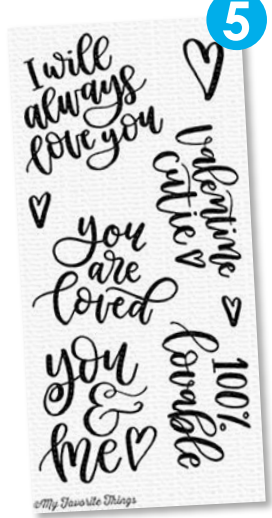 5
I will
always
love you
Valentine
cutie
you
are
loved
100%
lovable
you
&
me
My Favorite Things